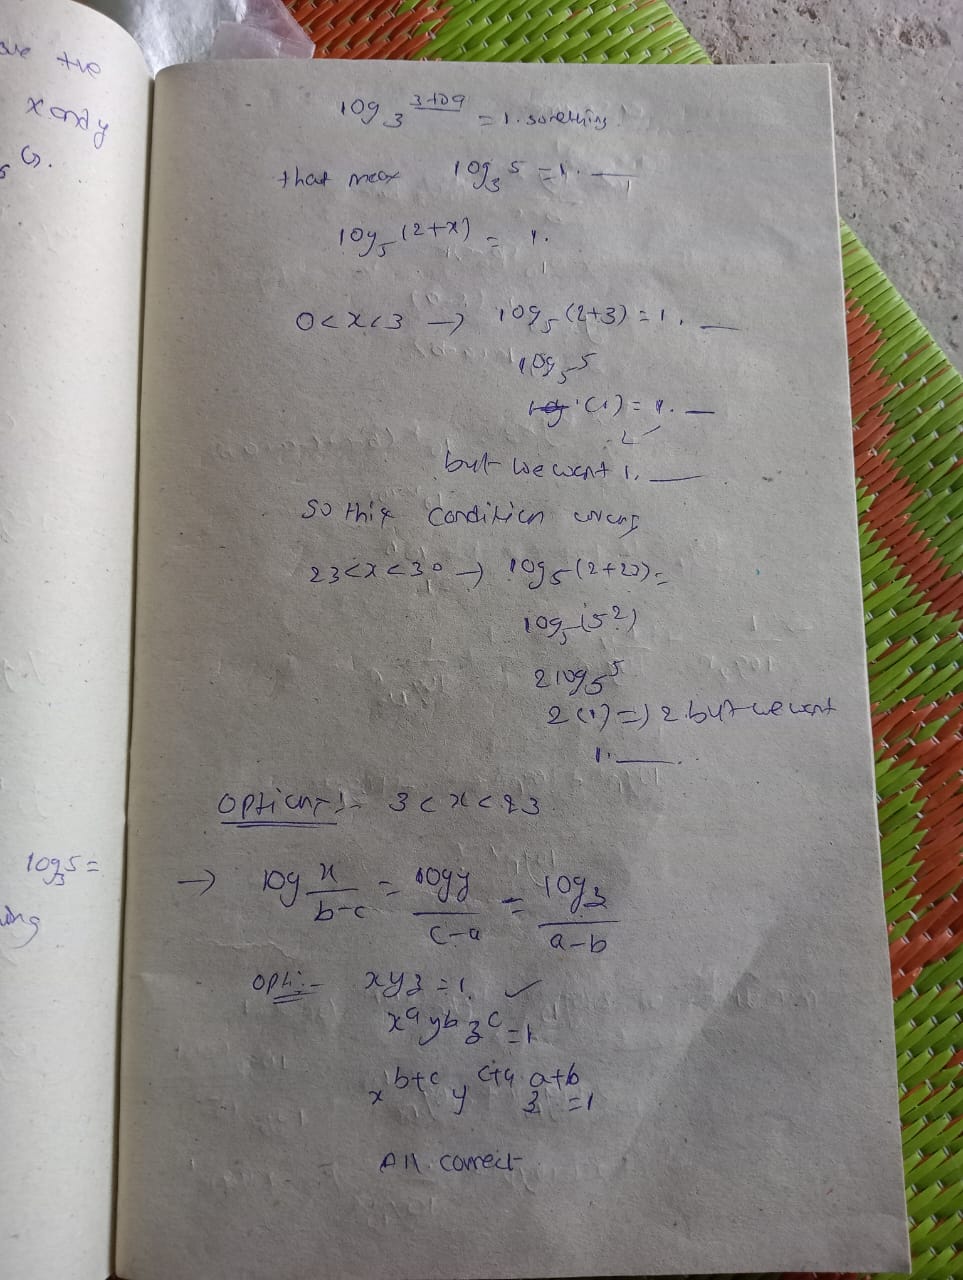 ve +ve
x and y
log₃ 3 to 9 = 1. something
that mean log₃ 5 = 1. __
log₅ (2+x) = 1.
0 < x < 3 → log₅ (2+3) = 1. __
log₅ 5
(1) = 1. __
but we want 1. __
so this condition wrong
23 < x < 30 → log₅ (2+23) =
log₅ (5²)
2 log₅ 5
2 (1) => 2 but we want
1. __
option :- 3 < x < 23
log₃ 5 =
→ log x/b-c = log y/c-a = log z/a-b
opti :- xyz = 1 ✓
xᵃ yᵇ zᶜ = 1
x^b+c y^c+a z^a+b = 1
All correct